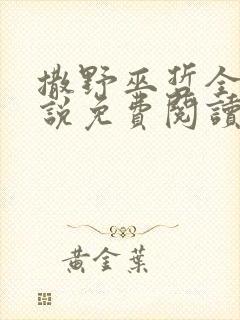 撒野巫哲全
說免費閱讀
黃金葉